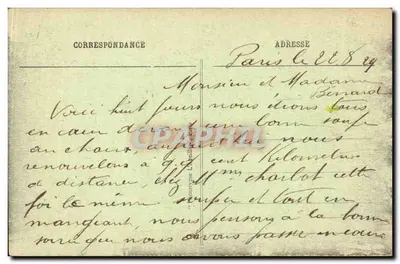 CORRESPONDANCE
ADRESSE
Paris le 22 8 29
Monsieur et Madame
Bénard
Voici huit jours nous étions tous
en cœur une bonne soupe
au choux, aujourd'hui nous
renouvelons à cent kilomètres
de distance, chez Mme Charlot cette
foi le même souper et tout en
mangeant, nous pensons à la bonne
soirée que nous avons passé encore